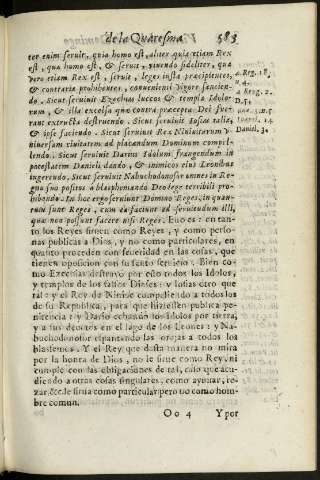 de la Quaresma. 583
ter enim seruit, quia homo est, aliter quia etiam Rex
est, quia homo est, & seruit, viuendo fideliter, quia
vero etiam Rex est, seruit, leges iusta præcipientes,
& contraria prohibentes, conuenienti vigore sancien-
do. Sicut seruiuit Ezechias lucos & templa Idolo-
rum, & illa excelsa quæ contra præcepta Dei fue-
rant extructa destruendo. Sicut seruiuit Iosias talia,
& ipse faciendo. Sicut seruiuit Rex Niniuitarum v-
niuersam ciuitatem ad placandum Dominum compel-
lendo. Sicut seruiuit Darius Idolum frangendum in
potestatem Danieli dando, & inimicos eius Leonibus
ingerendo. Sicut seruiuit Nabuchodonosor omnes in Re-
gno suo positos à blasphemando Deo lege terribili pro-
hibendo. In hoc ergo seruiunt Domino Reges, in quan-
tum sunt Reges, cum ea faciunt ad seruiendum illi,
quæ non possunt facere nisi Reges. Esto es: en tan-
to los Reyes siruen como Reyes, y como perso-
nas publicas a Dios, y no como particulares, en
quanto proceden con seueridad en las cosas, que
tienen oposicion con su santo seruicio. Bien co-
mo Ezechias destruyo por esto todos los Idolos,
y templos de los falsos Dioses: y Iosias otro que
tal: y el Rey de Niniue cumpeliendo a todos los
de su Republica, para que hiziessen publica pe-
nitencia: y Dario echando los Idolos por tierra,
y a sus deuotos en el lago de los Leones: y Na-
buchodonosor espantando las orejas a todos los
blasfemos. Y el Rey que desta manera no mira
por la honra de Dios, no le sirue como Rey, ni
cumple con las obligaciones de tal, sino que acu-
diendo a otras cosas singulares, como ayunar, re-
zar, &c. le sirua como particular, pero no como hom-
bre comun.
Oo 4 Y por
4. Reg. 18.
n. 4.
4. Reg. 2.
Daniel. 3.